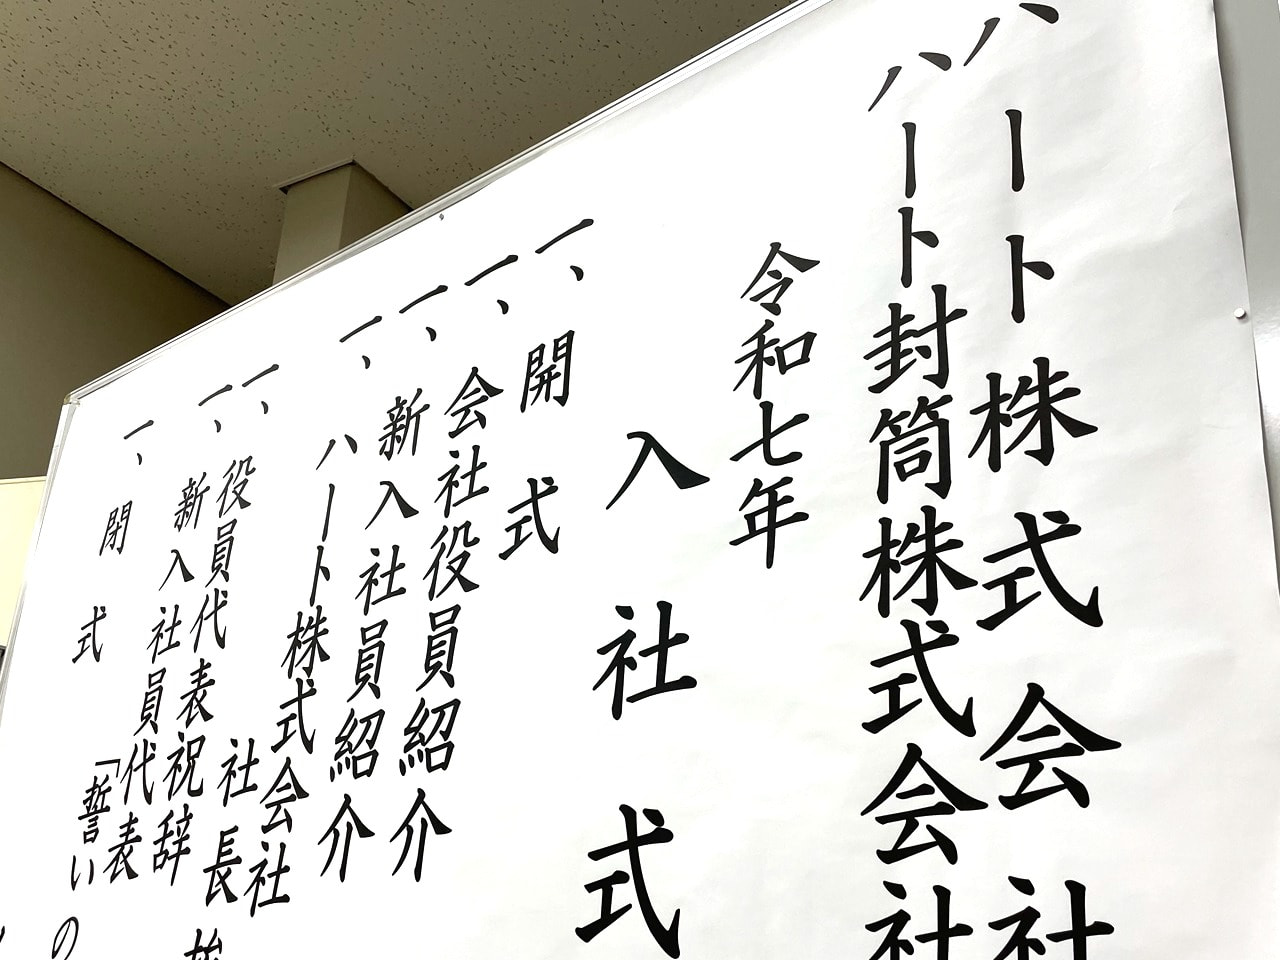 ハート株式会社
ハート封筒株式会社
令和七年
入社式
一、開式
一、会社役員紹介
一、新入社員紹介
一、ハート株式会社
社長
一、役員代表祝辞
一、新入社員代表
「誓いの
一、閉式